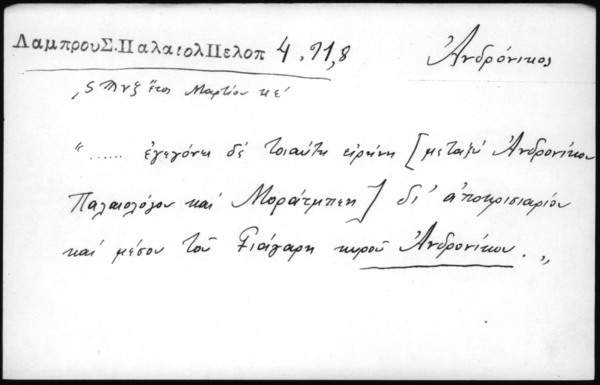 ΛαμπρουΣ.ΠαλαιολΠελοπ 4.91,8 Ἀνδρόνικος
ἔτος Μαρτίου κε′
"...... ἐγεγόνει δὲ τοιαύτη εἰρήνη [μεταξὺ Ἀνδρονίκου
Παλαιολόγου καὶ Μοράτμπεη] δι' ἀποκρισιαρίου
καὶ μέσου τοῦ Γιάγαρη κυροῦ Ἀνδρονίκου."